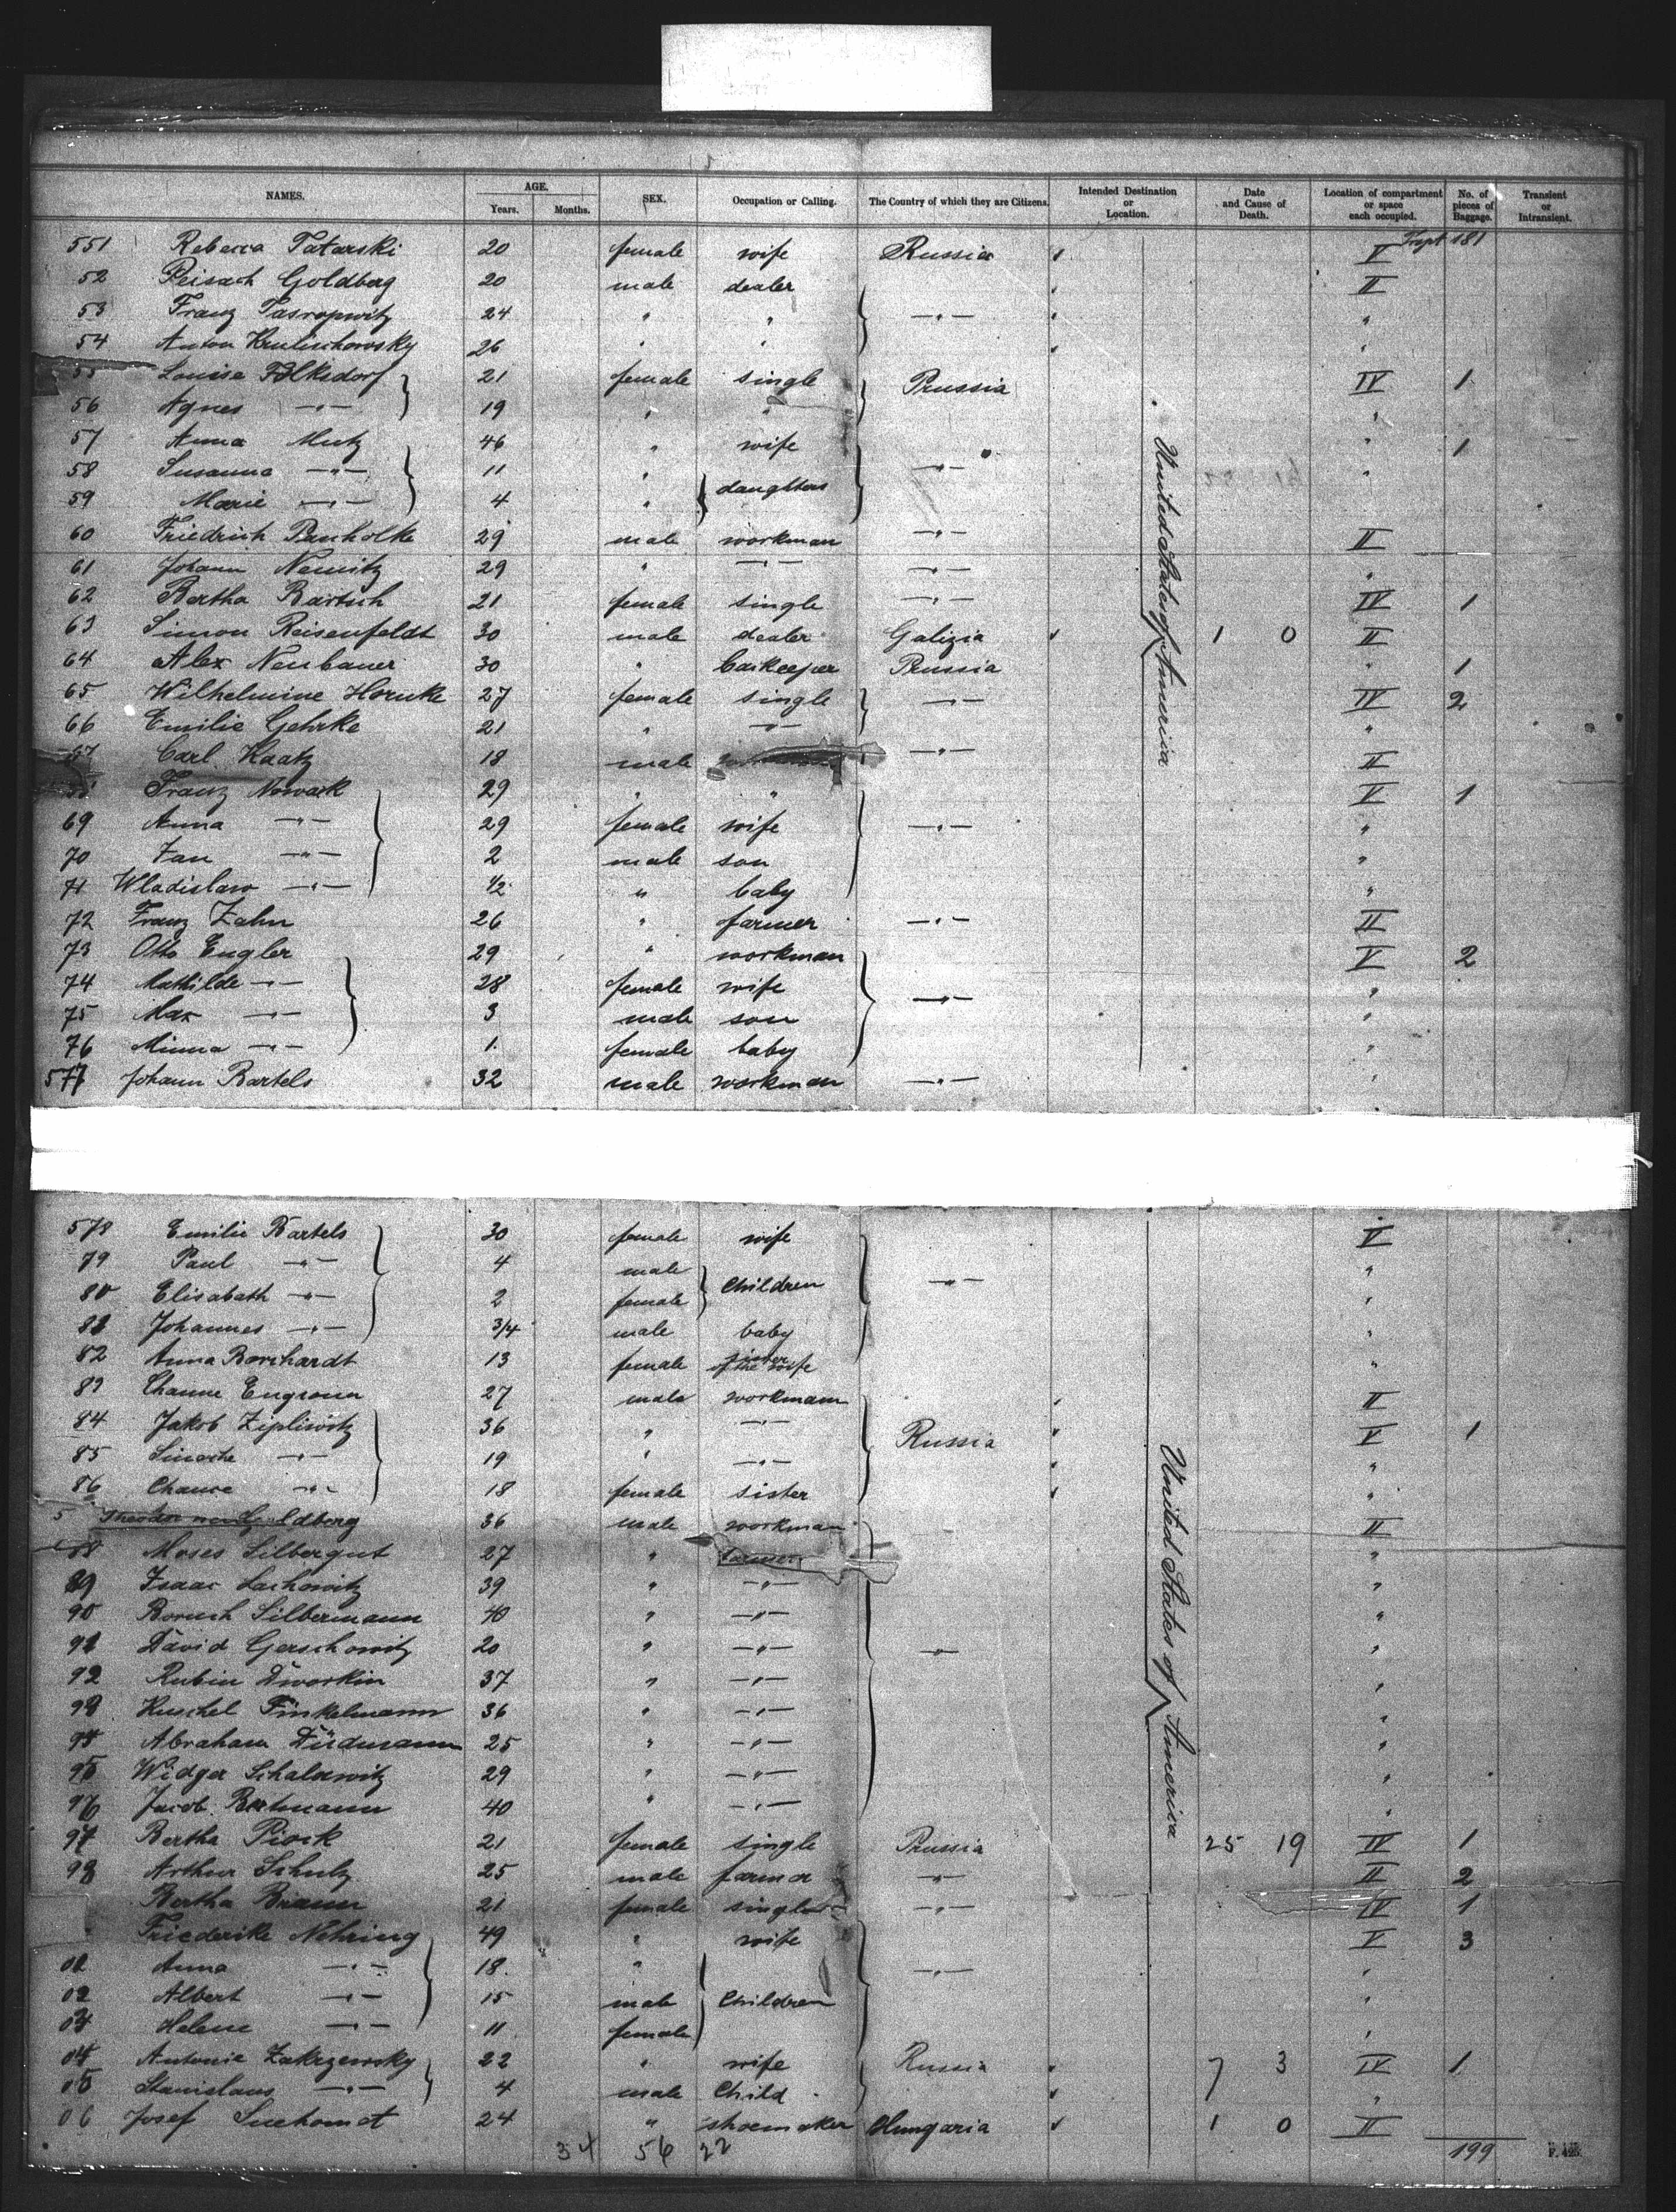 NAMES. AGE. SEX. Occupation or Calling. The Country of which they are Citizens. Intended Destination or Location. Date and Cause of Death. Location of compartment or space each occupied. No. of pieces of Baggage. Transient or Intransient.
Years. Months.
551 Rebecca Tatarski 20 female wife Russia V 181
52 Peisach Goldberg 20 male dealer II
53 Franz 24 " " —"— "
54 Anton 26 " " "
Louise Folksdorf 21 female single Prussia IV 1
56 Agnes —"— 19 " " "
57 Anna Mutz 46 " wife " 1
58 Susanna —"— 11 " daughters —"— "
59 Marie —"— 4 "
60 Friedrich Panholke 29 male workman —"— II
61 Johann Nemitz 29 " —"— —"— "
62 Bertha Bartsch 21 female single —"— IV 1
63 Simon Reisenfeldt 30 male dealer Galizia 1 0 II
64 Alex Neubauer 30 " barkeeper Prussia " 1
65 Wilhelmine Hornke 27 female single —"— IV 2
66 Emilie Gehrke 21 " —"— "
67 Carl Kaatz 18 male —"— II
Franz Nowack 29 " " V 1
69 Anna —"— 29 female wife —"— "
70 Jan —"— 2 male son "
71 Wladislaw —"— 1/2 " baby "
72 Franz Zahn 26 " farmer —"— II
73 Otto Engler 29 " workman V 2
74 Mathilde —"— 28 female wife "
75 Max —"— 3 male son —"— "
76 Minna —"— 1 female baby "
577 Johann Bartels 32 male workman —"— "
United States of America
578 Emilie Bartels 30 female wife V
79 Paul —"— 4 male Children —"— "
80 Elisabath —"— 2 female "
81 Johannes —"— 3/4 male baby "
82 Anna Borchardt 13 female sister of the wife "
83 27 male workmann II
84 Jakob 36 " —"— Russia V 1
85 —"— 19 " —"— "
86 —"— 18 female sister "
Goldberg 36 male workman II
88 Moses Silbergut 27 " farmer "
89 Isaac Lachowitz 39 " —"— "
90 Boruch Silbermann 40 " —"— "
91 David Gerschowitz 20 " —"— —"— "
92 Rubin Dworkin 37 " —"— "
93 Finkelmann 36 " —"— "
94 Abraham 25 " —"— "
95 29 " —"— "
96 Jacob 40 " —"— "
97 Bertha Piock 21 female single Prussia 25 19 IV 1
98 Arthur Schulz 25 male farmer —"— II 2
Bertha Braun 21 female single —"— IV 1
Friederike Nehring 49 " wife V 3
Anna —"— 18 " Children —"— "
02 Albert —"— 15 male "
Helene —"— 11 female "
04 Antonie Zakrzewsky 22 " wife Russia 7 3 IV 1
05 Stanislaus —"— 4 male Child "
06 Josef Suchomet 24 " shoemaker Hungaria 1 0 II
United States of America
34 56 22 199